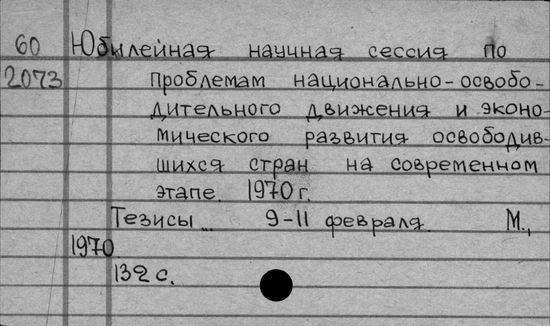 60 Юбилейная научная сессия по
2073 проблемам национально-освобо-
дительного движения и эконо-
мического развития освободив-
шихся стран на современном
этапе. 1970 г.
Тезисы... 9-11 февраля. М.,
1970
132 с.